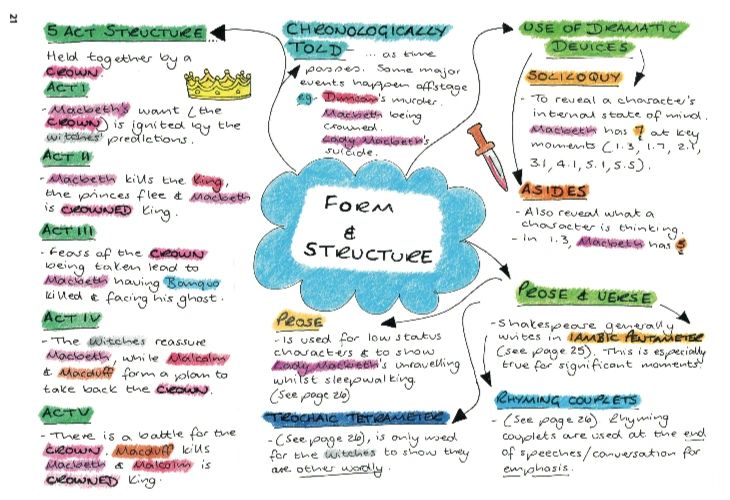 21
5 ACT STRUCTURE...
Held together by a
CROWN
ACT I
- Macbeth's want (the
CROWN) is ignited by the
witches' predictions.
ACT II
- Macbeth kills the King,
the princes flee & Macbeth
is CROWNED King.
ACT III
- Fears of the CROWN
being taken lead to
Macbeth having Banquo
killed & facing his ghost.
ACT IV
- The witches reassure
Macbeth, while Malcolm
& Macduff form a plan to
take back the CROWN.
ACT V
- There is a battle for the
CROWN. Macduff kills
Macbeth & Malcolm is
CROWNED King.
CHRONOLOGICALLY
TOLD
... as time
passes. Some major
events happen offstage
eg. Duncan's murder.
Macbeth being
crowned.
Lady Macbeth's
suicide.
FORM
&
STRUCTURE
PROSE
- Is used for low status
characters & to show
Lady Macbeth's unravelling
whilst sleepwalking.
(See page 26)
TROCHAIC TETRAMETER
- (See page 26), is only used
for the witches to show they
are other wordly.
USE OF DRAMATIC
DEVICES
SOLILOQUY
- To reveal a character's
internal state of mind.
Macbeth has 7 at key
moments (1.3, 1.7, 2.1,
3.1, 4.1, 5.1, 5.5).
ASIDES
- Also reveal what a
character is thinking.
- In 1.3, Macbeth has 5
PROSE & VERSE
- Shakespeare generally
writes in IAMBIC PENTAMETER
(see page 25). This is especially
true for significant moments
RHYMING COUPLETS
- (See page 26) Rhyming
couplets are used at the end
of speeches/conversation for
emphasis.